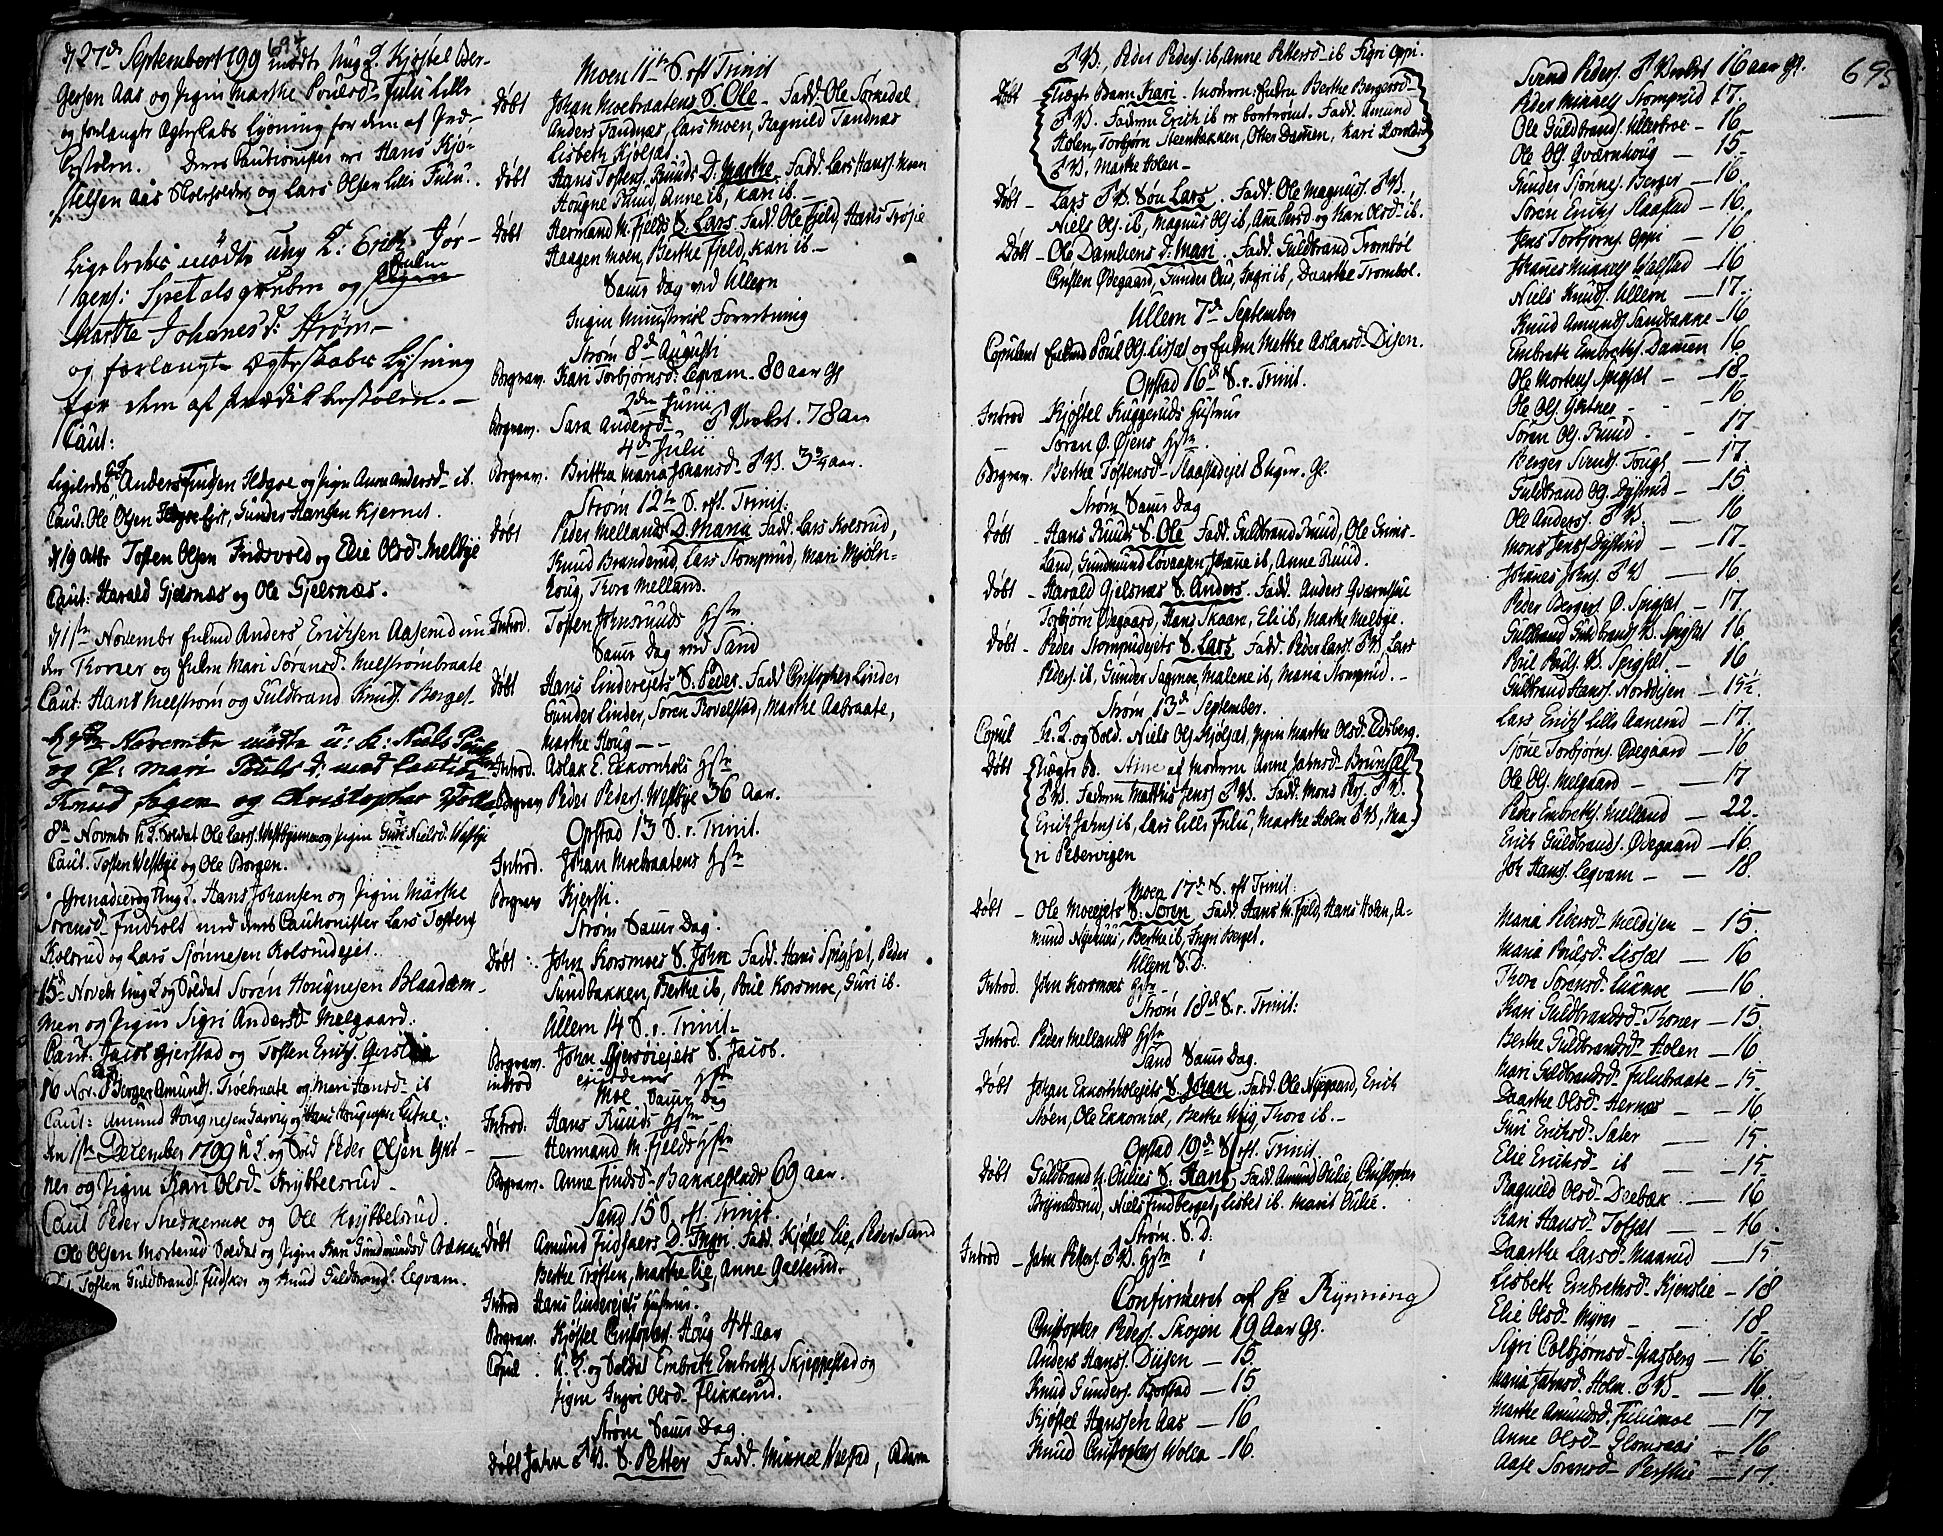 694
d 27de Septembert 199 mødte Ung K. Kjøstel Ber-
gersen Aas og Pigen Marthe Poulsd. Fulu Lille
og forlangte Ægteskabs Lysning for dem af Præd-
Hans Kjø-
stelsen Aas Skoleholder og Lars Olsen Lille Fulu.
Ligeledes mødte ung K: Erich Jør-
gens: Spetalsgruben og
Marthe Johanesd: Strøm
og forlangte Ægteskabs Lysning
for dem af Prædikkestolen. —
Caut:
Anders Finsen og Pigen Anne Andersd. ib.
Caut. Ole Olsen Gunder Hansen Kjernet.
d 19 Octbr Tosten Olsen Fridsvold og Elie Olsd. Melbye
Caut: Harald Gjelsnæs og Ole Gjelsnæs.
d 1ste Novembr Anders Erichsen Aaserud un-
der Thoner og Mari Sørensd. Melstrømbraate
Caut: Hans Melstrøm og Guldbrand Knuds. Berget
Novembr mødte u: K: Niels
og P: Mari Pouls d: med Caution
Knud Fogen og Christopher
8de Novembr U. K. Soldat Ole Larss. og Pigen Guri Nielsd. Westbye
Caut. Tosten Westbye og Ole Borgen.
Grenadeer og Ung K. Hans Johansen og Pigen Marthe
Sørensd. Findholt med deres Cautionister Lars Tostens
Kolsrud og Lars Sjønnesen Kolsrudejet.
15de Novebr Ung K og Soldat Søren Hougnesen Blaadæm-
men og Pigen Sigri Andersd. Melgaard.
Caut. Jacob Gjerstad og Tosten Erichs.
16 Nov. Berger Amunds. Troebraate og Mari Hansd. ib
Caut: Amund Hougnesen
den 1ste December 1799 U. K. og Sold Peder Olsen Gjet-
ner og Pigen Kari Olsd. Knybbelsrud.
Caut Peder Snedkermoe og Ole Knybbelsrud.
Ole Olsen Morterud Soldat og Pigen Kari Gundmundsd
Tosten Guldbrands. Fidskør og Knud Guldbrands. Leqvam.
Moen 11te S. eft Trinit
Døbt Johan Moebraatens S. Ole. Fadd. Ole Sørkedal
Anders Tandnæs, Lars Moen, Ragnild Tandnæs
Lisbeth Kjølsæt
Døbt Hans Tostens. Ruuds D. Marthe. Fadd. Lars Hans. Moen
Hougne Ruud, Anne ib, Kari ib. —
Døbt Hermand M. Fjelds S. Lars. Fadd. Ole Fjeld, Hans Trosie
Haagen Moen, Berthe Fjeld, Kari ib. —
Same Dag ved Ullern
Ingen Ministeriel Forretning
Strøm 8de Augusti
Begrav. Kari Torbjørnsd. Leqvam. 80 aar gl
2den Junii
Begrav. Sara Andersd. S. Værket. 78 aar
4de Julii
Begrav. Brittha Maria Johansd. S. V. 3 3/4 aar.
Strøm 12te S. eft. Trinit:
Døbt Peder Mellands D. Maria Fadd. Lars Kolsrud,
Knud Branderud, Lars Stomprud, Mari Mjøln-
houg, Thore Melland.
Introd. Tosten Johnsruuds Hstr.
Same Dag ved Sand
Døbt Hans Linderejets S. Peder. Fadd Christopher Linder
Gunder Linder, Søren Bovelstad, Marthe Aabraate,
Marthe Houg — —
Introd. Aslak E. Ekkornhols Hstr
Begrav Peder Peders. Westbye 36 Aar.
Opstad 13 S. e. Trinit.
Introd. Johan Moebraatens Hstr
Begrav Kjersti.
Strøm Same Dag.
Døbt. John Korsmoes S. John Fadd. Hans Spigset, Peder
Sundbakken, Berthe ib, Poul Korsmoe, Guri ib.
Ullern 14 S. e. Trinit.
Begrav. John Gjersøiejets S. Jacob.
introd Hstr
Moe Same Dag
Introd. Hans Ruuds Hstr
— Hermand M. Fjelds Hstr
Begrav. Anne Findsd. Bakkeflads 69 aar.
Sand 15 S. eft. Trinit.
Døbt Amund Fidskaers D. Ingri. Fadd. Kjøstel Lie, Peder Sand
Berthe Trøften, Marthe Lie, Anne Galterud.
Introd Hans Linderejets Hustrue.
Begrav. Kjøstel Christophers. Houg 44 aar
Copul. U. K. og Soldat Embreth Embreths. Skjeppestad og
Pigen Ingri Olsd. Flikkerud.
Strøm Same Dag.
Døbt Jahn S. V. S. Petter Fadd. Minnel Walstad, Adam
S. V., Peder Peders. ib, Anne Pettersd. ib Sigri Oppi.
Døbt Uægte Barn Kari. Moderen: Berthe Bergersd.
S. V. Faderen Erich ib er bortrømt. Fadd. Amund
Holen, Torbjørn Steenbakken, Otter Dammen, Kari
S. V., Marthe Holen —
Døbt — Lars S. V. Søn Lars. Fadd: Ole Magnus. S. V.,
Niels Ols. ib, Magnus Ols ib, Ane Persd og Kari Olsd. ib.
Døbt — Ole Damliens D. Mari. Fadd. Guldbrand Trombøl
Christen Ødegaard, Gunder Oud, Ingri ib, Daarthe Trombøl.
Ullern 7de September
Copuleret Poul Ols. Lisset og Methe Aslansd. Disen.
Opstad 16de S. e. Trinit.
Introd — Kjøstel Kuggeruds Hustrue
— Søren Ø. Øjens Hstr.
Begrav. Berthe Tostensd. Slaastadejet 8 uger. Gl.
Strøm Same Dag
Døbt — Hans Ruuds S. Ole Fadd. Guldbrand Ruud, Ole Grims-
land, Gundmund Lovaasen, Johane ib, Anne Ruud.
Døbt — Harald Gjelsnæs S. Anders. Fadd. Anders Qværnstue
Torbjørn Ødegaard, Hans Skaare, Eli ib, Marthe Melbye.
Døbt — Peder Stomprudejets S. Lars Fadd. Peder Larss. S. V., Lars
Peders. ib, Gunder Sagmoe, Malene ib, Maria Stomprud. —
Strøm 13de September.
Copul U. K. og Sold. Niels Ols Kjølsæt, Pigen Marthe Olsd. Edsberg.
Døbt Uægte Bd. Anne af Moderen Anne Jahnsd. Brunsæt
S. V. Faderen Matthis Jens. S. V. Fadd. Mons Pers. S. V.
Erich Jahns ib, Lars Lille Fulu, Marthe Holm S. V., Ma-
ri Pedervigen
Moen 17de S. eft Trinit:
Døbt — Ole Moeejets S: Søren Fadd. Hans M. Fjeld, Hans Holen, A-
mund Nyehuus, Berthe ib, Ingri Berget.
Ullern S. D.
Introd. John Korsmoes Hstr
Strøm 18de S. e. Trinit:
Introd. Peder Mellands Hstr
Sand Same Dag.
Døbt Johan Ekkornholejets S. Johan. Fadd. Ole Nygaard, Erich
Moen, Ole Ekkornhol, Berthe Thig, Thore ib. —
Opstad 19de S. eft. Trinit.
Døbt Guldbrand N. Oulies S. Hans, Fadd. Amund Oulie, Christopher
Brynedsrud, Niels Findberget, Lisbet ib. Marit Oulie.
Strøm. S. D.
Introd — Jahn Petters. S. V. Hstr
Confirmeret af Hr Rynning
Christopher Peders. Skogen 19 Aar Gl.
Anders Hans. Diisen — 15
Knud Gunders. Bjørstad — 15
Kjøstel Hanssen Aas — 16
Knud Christophers Wolea — 16.
695
Svend Peders. S. Verket 16 aar gl.
Peder Minnels Stomprud 17.
Ole Guldbrands. Ullerbroe — 16
Ole Ols. Qværnhoug — 15
Gunder Sjønnes. Berger — 16.
Søren Erichs Slaastad — 16
Jens Torbjørns. Oppi — 16
Johanes Minnels Walstad — 16
Niels Knuds. Ullern — 17.
Knud Amunds Sandbakke — 16
Embreth Embreths. Damen 16
Ole Mortens Spigset — 18
Ole Ols. Gjetner — 16
Søren Ols. Ruud — 17
Berger Svends. Fougl — 17
Guldbrand Ols. Dysterud — 15
Ole Anders. S. V. — 16
Mons Jens. Dysterud — 17
Johanes Johns. S. V. — 16.
Peder Bergers. Ø. Spigset — 17
Guldbrand Guldbrands N. Spigset 16
Poul Pouls. V. Spigset. — 16
Guldbrand Hans. Norddisen — 15½.
Lars Erichs Lille Aanerud — 17.
Sjøne Torbjørns. Ødegaard — 16
Ole Ols. Melgaard — 17
Peder Embreths. Melland — 22.
Erich Guldbrands. Ødegaard — 16
Joh Hans. Leqvam — 18.
Maria Pedersd. Meldisen — 15.
Maria Poulsd. Lisset — 16
Thore Sørensd. Lukmoe — 16
Kari Guldbrandsd. Thoner — 15
Berthe Guldbrandsd. Holen — 16
Mari Guldbrandsd. Fulubraate — 15.
Daarthe Olsd. Hernæs — 16
Guri Eriksd. Sater — 15.
Elie Eriksd. ib — 15
Ragnild Olsd. Deebæk. — 16
Kari Hansd. Tofset — 16.
Daarthe Larsd. Maanud — 15
Lisbeth Embrethsd. Kjenslie — 18
Elie Olsd. Myrer — 18
Sigri Colbjørnsd. Grasberg — 16
Maria Jahnsd. Holm. S. V. — 16.
Marthe Amundsd. Fulumoe — 17
Anne Olsd. Glomsaas — 16
Aase Sørensd. Perstue — 17.